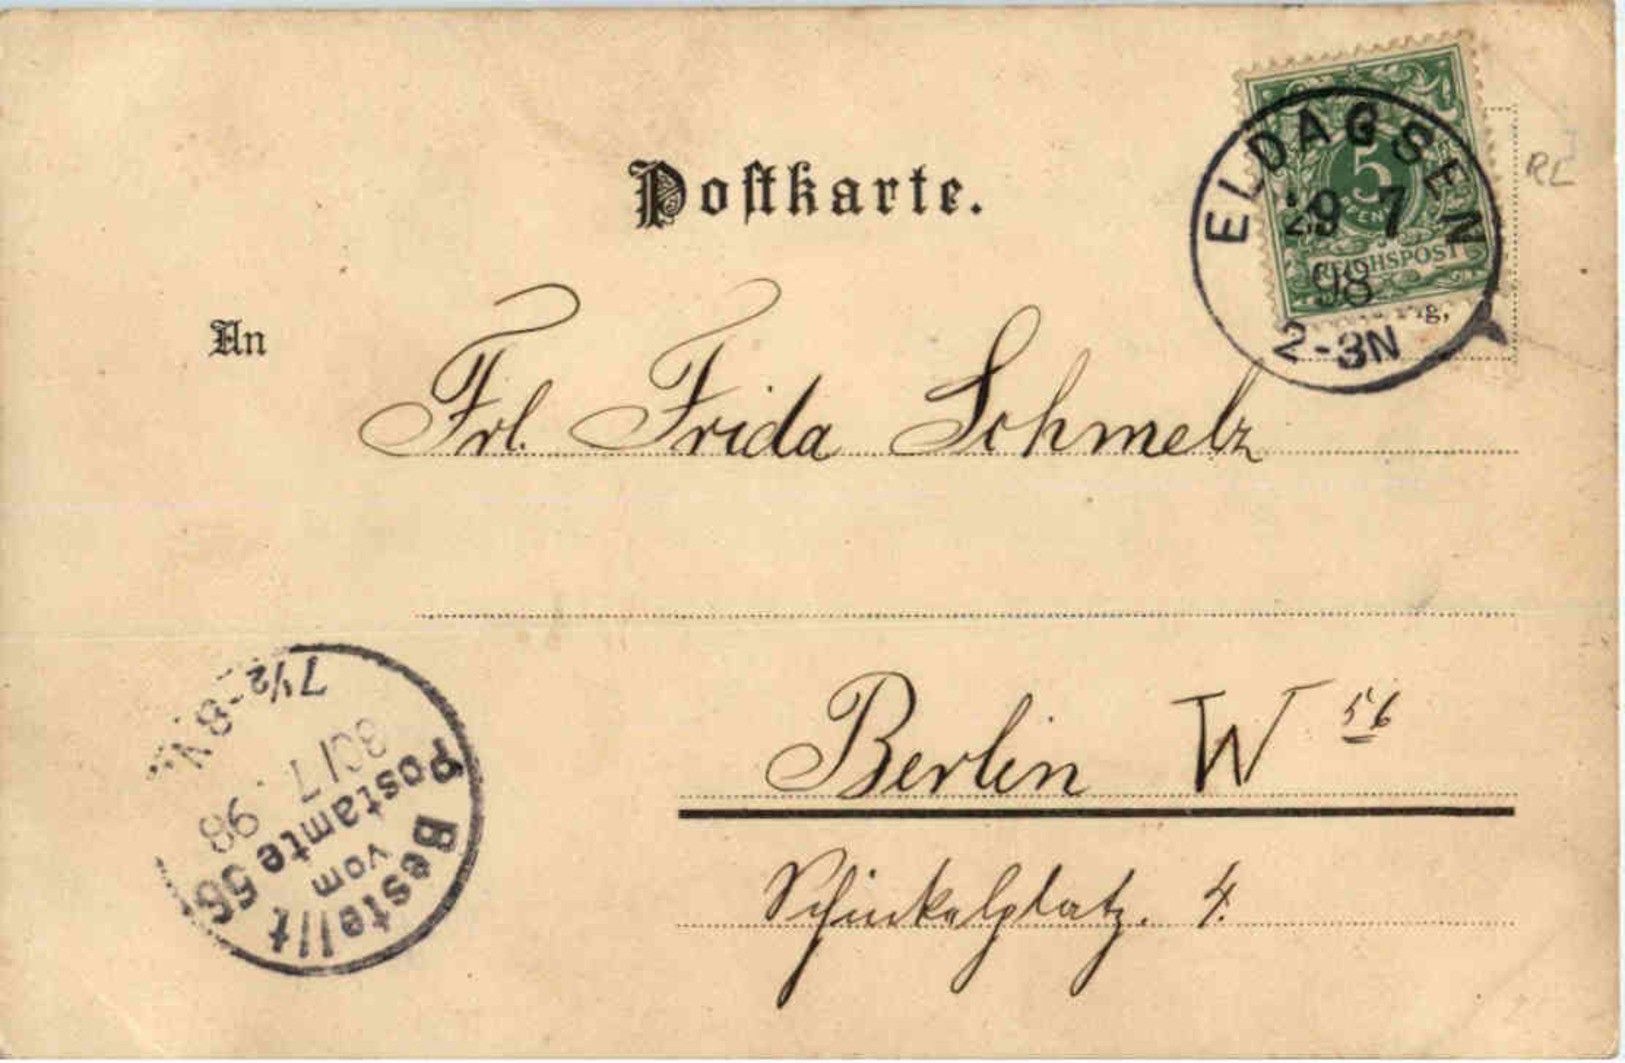 Postkarte.
5
REICHSPOST
ELDAGSEN
29 7
98
2-3N
RL
An
Frl. Frida Schmelz
Berlin W 56
Schinkelplatz. 4.
Bestellt
vom
Postamte 56
30/7. 98
7½-8V.